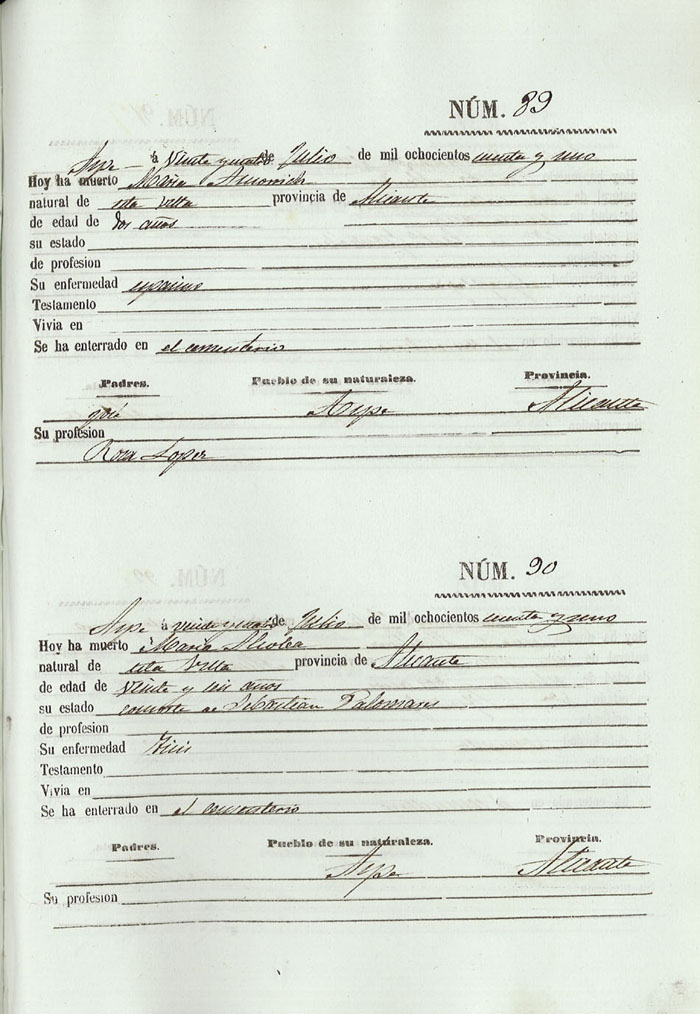 NÚM. 89
Aspe á veinte y cuatro de Julio de mil ochocientos cuenta y uno
Hoy ha muerto Maria
natural de esta villa provincia de Alicante
de edad de dos años
su estado
de profesion
Su enfermedad
Testamento
Vivia en
Se ha enterrado en el cementerio
Padres. Pueblo de su naturaleza. Provincia.
José Aspe Alicante
Su profesion
Rosa Lopez
NÚM. 90
Aspe á veinte y cuatro de Julio de mil ochocientos cuenta y uno
Hoy ha muerto Maria Alcolea
natural de esta Villa provincia de Alicante
de edad de veinte y seis años
su estado consorte de Sebastian Palomares
de profesion
Su enfermedad Tisis
Testamento
Vivia en
Se ha enterrado en el cementerio
Padres. Pueblo de su naturaleza. Provincia.
Aspe Alicante
Su profesion